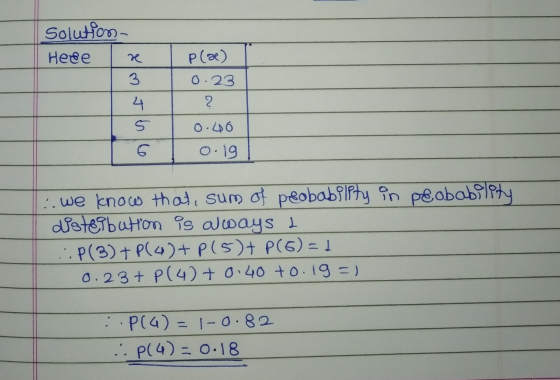 Solution-
Here x P(x)
3 0.23
4 ?
5 0.40
6 0.19
∴ we know that, sum of probability in probability
distribution is always 1
∴ P(3)+P(4)+P(5)+P(6)=1
0.23+P(4)+0.40+0.19=1
∴ P(4)=1-0.82
∴ P(4)=0.18